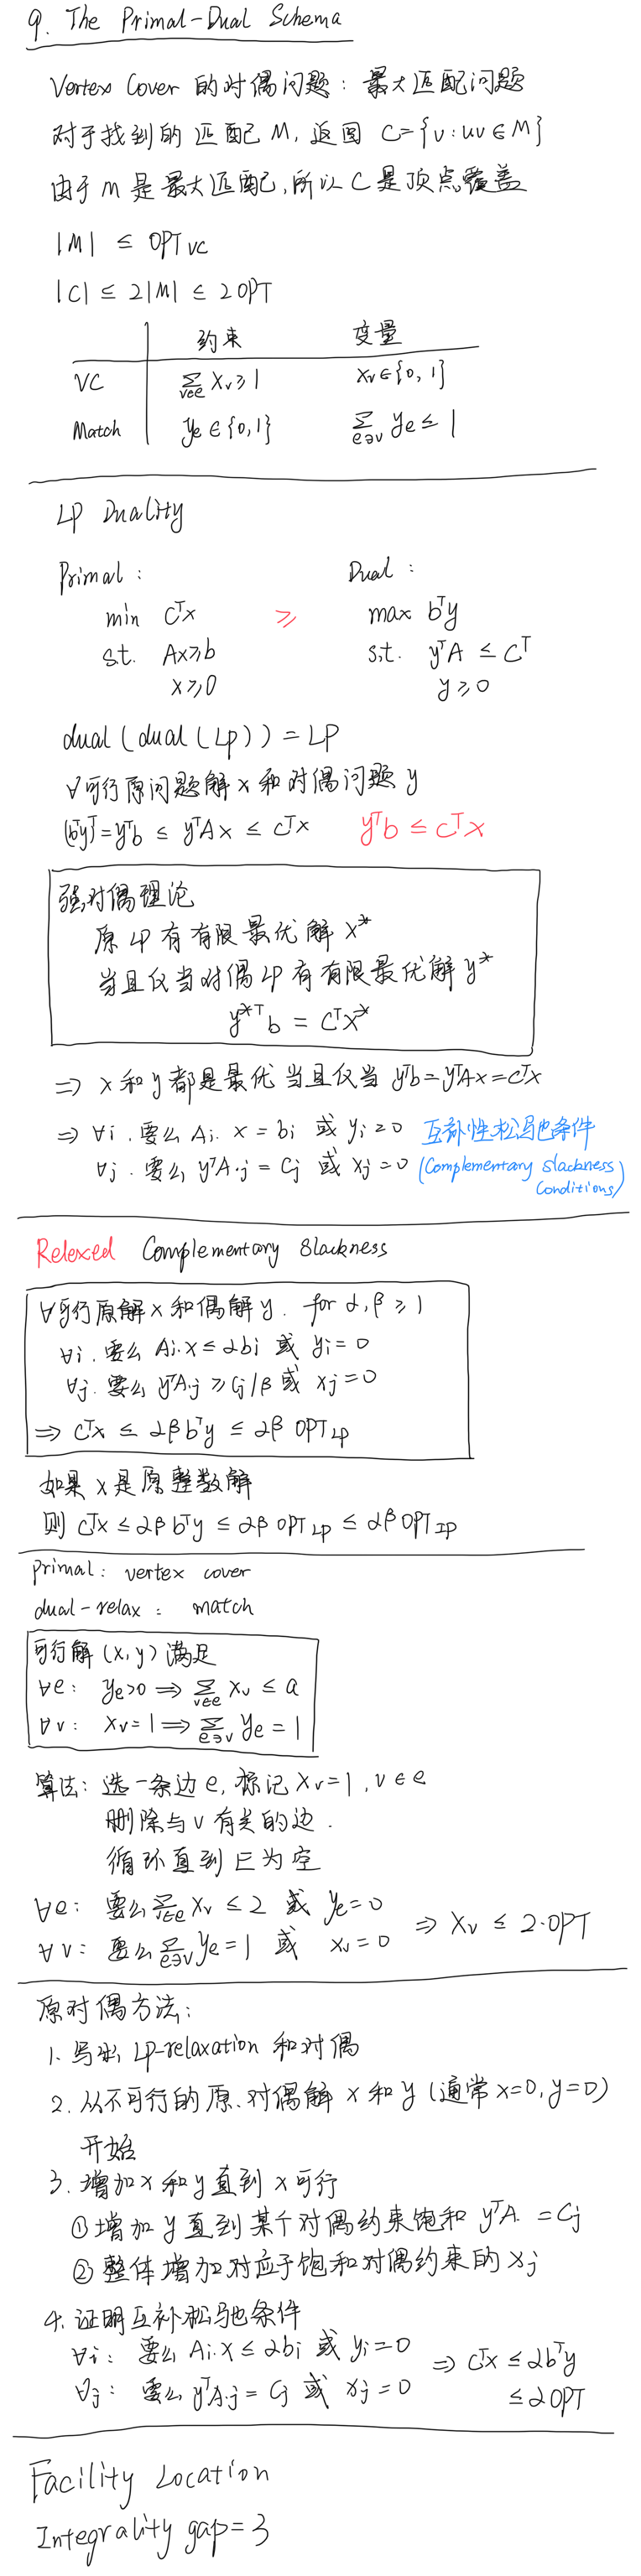 9. The Primal-Dual Schema
Vertex Cover 的对偶问题: 最大匹配问题
对于找到的匹配 M, 返回 C={v: uv∈M}
由于 M 是最大匹配,所以 C 是顶点覆盖
|M| ≤ OPT_VC
|C| ≤ 2|M| ≤ 2OPT
约束 变量
VC ∑_{v∈e} Xv ≥ 1 Xv∈{0, 1}
Match ye∈{0,1} ∑_{e∋v} ye ≤ 1
LP Duality
Primal: Dual:
min cᵀx ≥ max bᵀy
s.t. Ax≥b s.t. yᵀA ≤ cᵀ
x≥0 y≥0
dual(dual(LP)) = LP
∀可行原问题解 x 和对偶问题 y
(bᵀy)ᵀ=yᵀb ≤ yᵀAx ≤ cᵀx yᵀb ≤ cᵀx
强对偶理论
原 LP 有有限最优解 x*
当且仅当对偶 LP 有有限最优解 y*
y*ᵀb = cᵀx*
⇒ x 和 y 都是最优 当且仅当 yᵀb=yᵀAx=cᵀx
⇒ ∀i. 要么 Ai. x = bi 或 yi=0 互补性松弛条件
∀j. 要么 yᵀA.j = cj 或 xj=0 (Complementary Slackness Conditions)
Relexed Complementary Slackness
∀可行原解 x 和偶解 y. for α,β ≥ 1
∀i. 要么 Ai.x ≤ αbi 或 yi = 0
∀j. 要么 yᵀA.j ≥ cj/β 或 xj=0
⇒ cᵀx ≤ αβ bᵀy ≤ αβ OPT_LP
如果 x 是原整数解
则 cᵀx ≤ αβ bᵀy ≤ αβ OPT_LP ≤ αβ OPT_IP
primal: vertex cover
dual-relax: match
可行解 (x, y) 满足
∀e: ye>0 ⇒ ∑_{v∈e} Xv ≤ a
∀v: Xv=1 ⇒ ∑_{e∋v} ye = 1
算法: 选一条边 e, 标记 Xv=1, v∈e
删除与 v 有关的边.
循环直到 E 为空
∀e: 要么 ∑_{v∈e} Xv ≤ 2 或 ye=0
∀v: 要么 ∑_{e∋v} ye=1 或 xv=0 ⇒ Xv ≤ 2·OPT
原对偶方法:
1. 写出 LP-relaxation 和对偶
2. 从不可行的原、对偶解 x 和 y (通常 x=0, y=0)
开始
3. 增加 x 和 y 直到 x 可行
① 增加 y 直到某个对偶约束饱和 yᵀA. = cj
② 整体增加对应于饱和对偶约束的 xj
4. 证明互补松弛条件
∀i: 要么 Ai.x ≤ αbi 或 yi=0
∀j: 要么 yᵀA.j = cj 或 xj=0 ⇒ cᵀx ≤ αbᵀy
≤ αOPT
Facility Location
Integrality gap=3